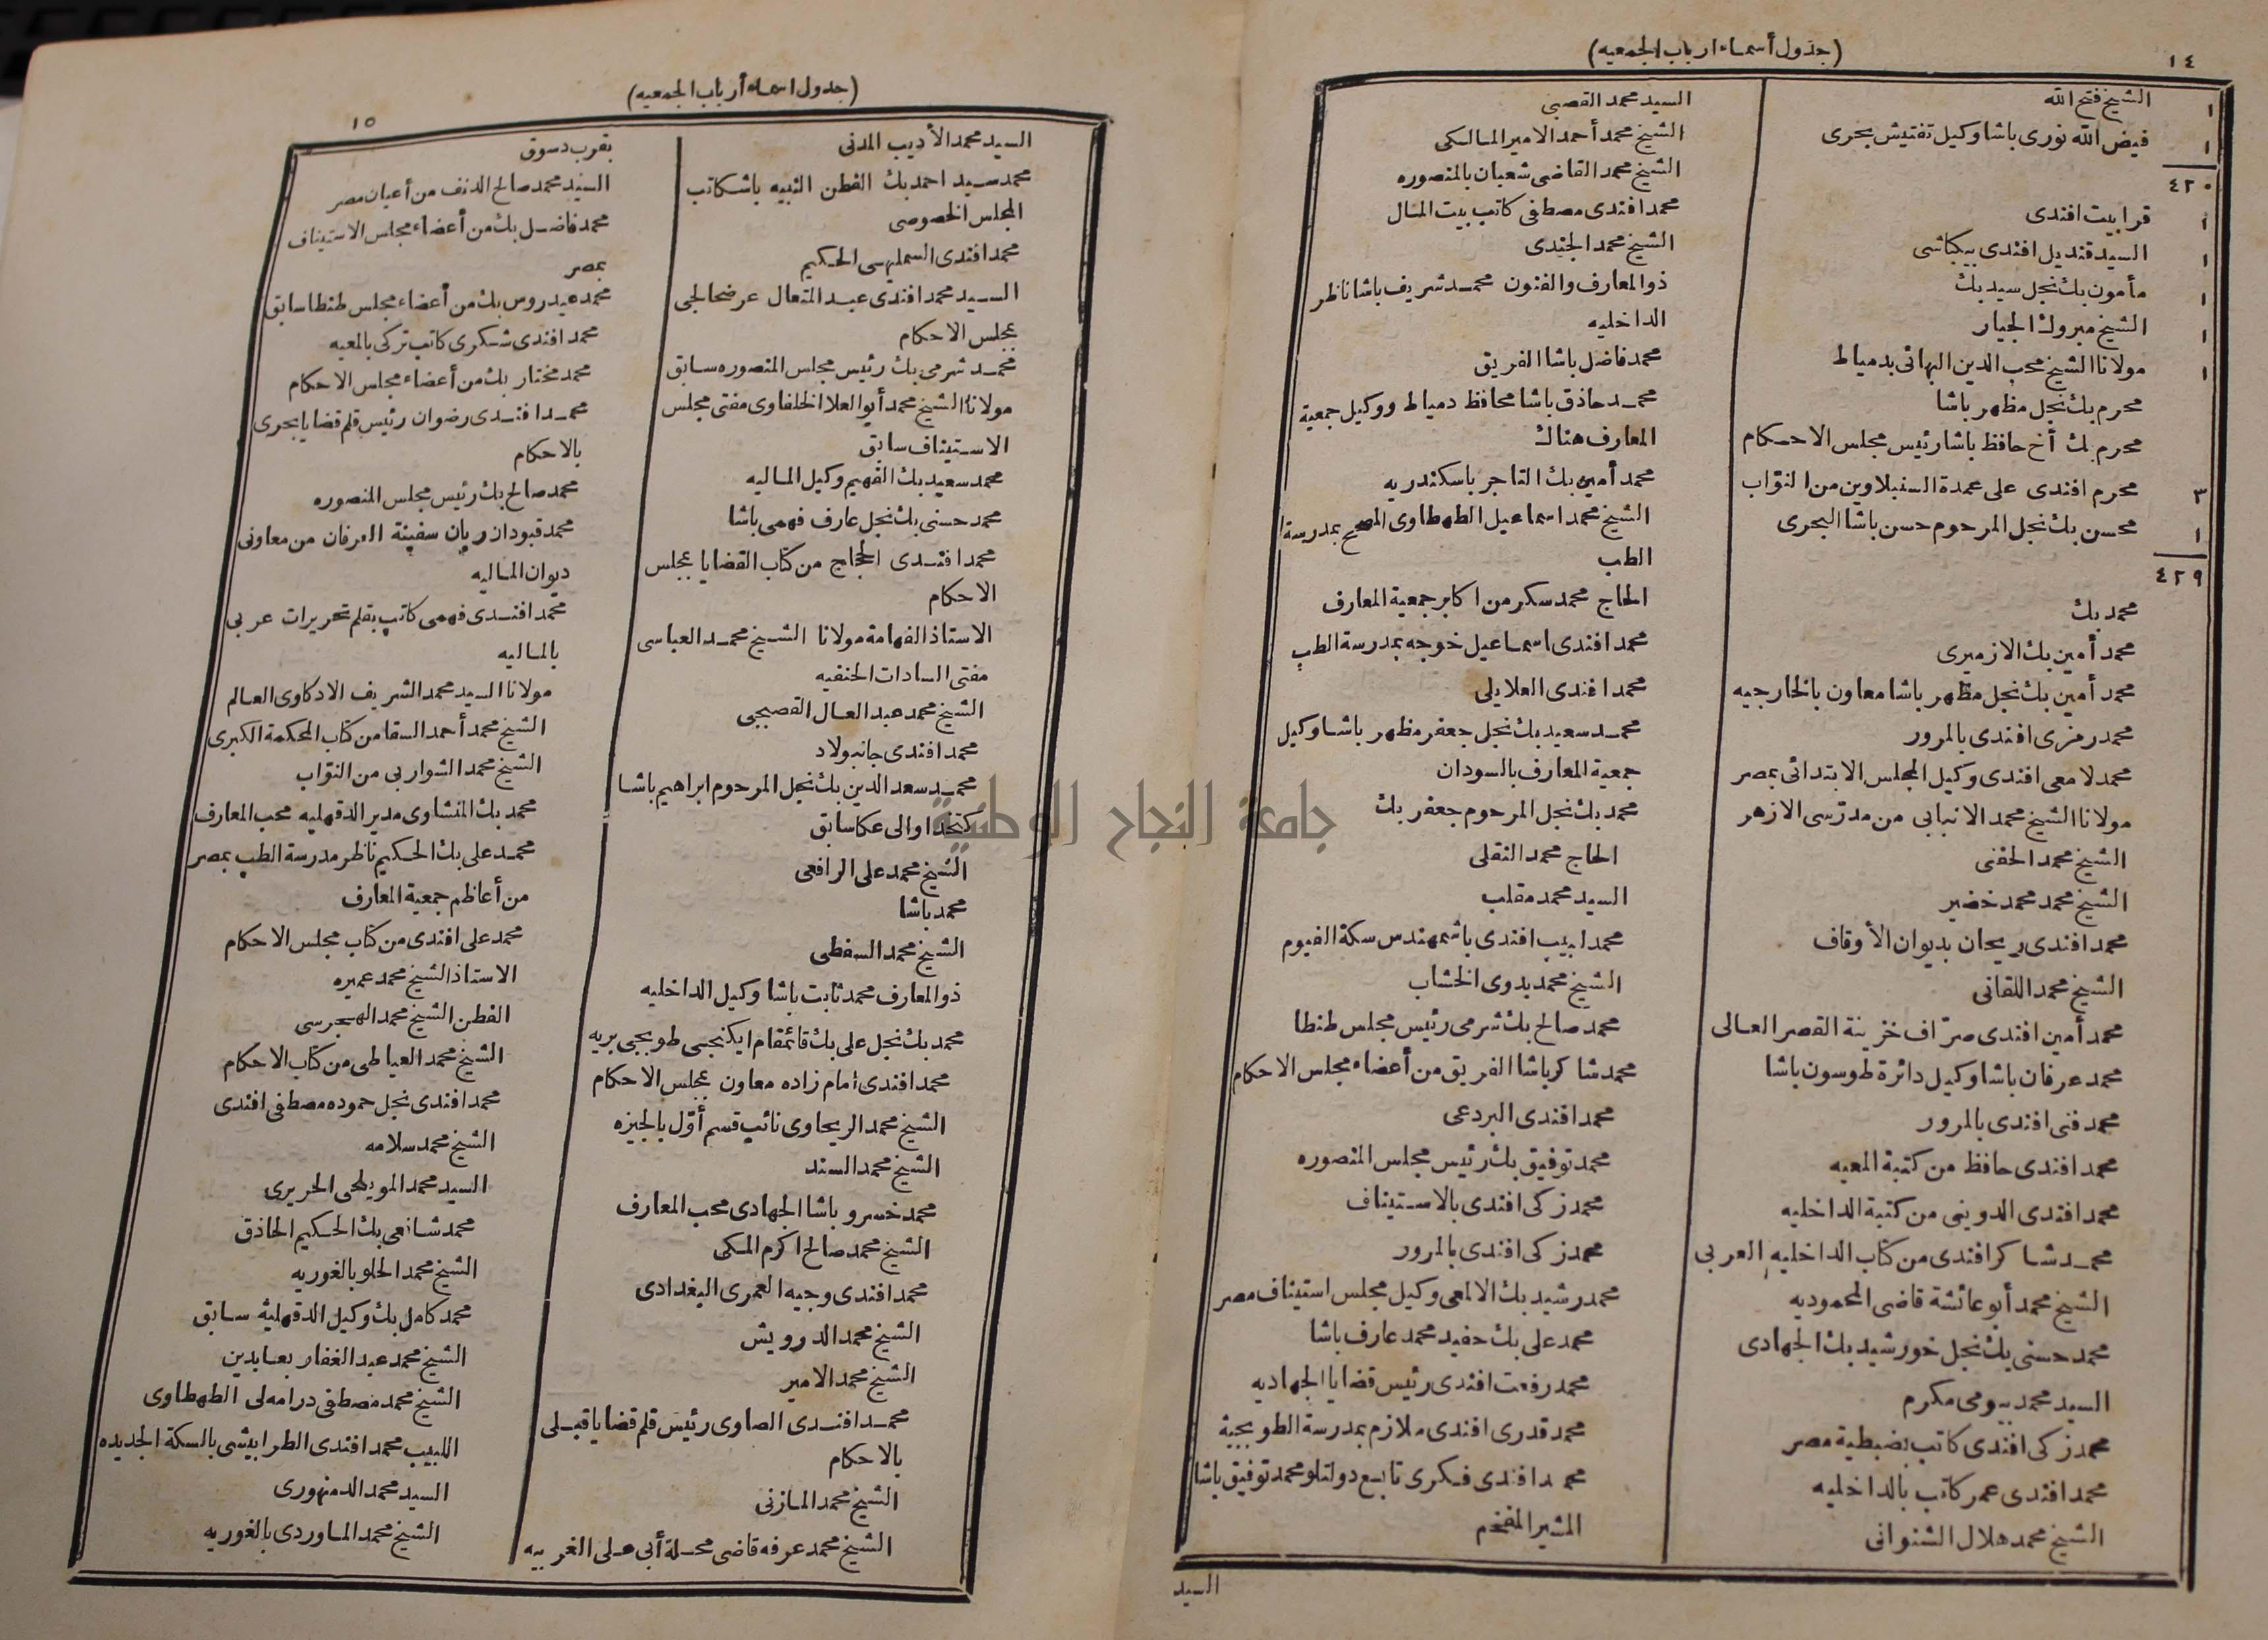 ١٤
(جدول أسماء ارباب الجمعيه)
١ الشيخ فتح الله
١ فيض الله نورى باشا وكيل تفتيش بحرى
٤٢٠
١ قرابيت افندى
١ السيد قنديل افندى بيكباشى
١ مأمون بك نجل سيد بك
١ الشيخ مبروك الجيار
١ مولانا الشيخ محب الدين البهائى بدمياط
محرم بك نجل مظهر باشا
محرم بك أخ حافظ باشا رئيس مجلس الاحكام
٣ محرم افندى على عمدة السنبلاوين من النوّاب
١ محسن بك نجل المرحوم حسن باشا البحرى
٤٢٩
محمد بك
محمد أمين بك الازميرى
محمد أمين بك نجل مظهر باشا معاون بالخارجيه
محمد رمزى افندى بالمرور
محمد لامعى افندى وكيل المجلس الابتدائى بمصر
مولانا الشيخ محمد الانبابى من مدرّسى الازهر
الشيخ محمد الحفنى
الشيخ محمد محمد خضير
محمد افندى ريحان بديوان الأوقاف
الشيخ محمد اللقانى
محمد أمين افندى صرّاف خزينة القصر العالى
محمد عرفان باشا وكيل دائرة طوسون باشا
محمد فنى افندى بالمرور
محمد افندى حافظ من كتبة المعيه
محمد افندى الدوينى من كتبة الداخليه
محمد شاكر افندى من كتاب الداخليه العربى
الشيخ محمد أبو عائشة قاضى المحموديه
محمد حسنى بك نجل خورشيد بك الجهادى
السيد محمد بيومى مكرم
محمد زكى افندى كاتب بضبطية مصر
محمد افندى عمر كاتب بالداخليه
الشيخ محمد هلال الشنوانى
السيد محمد القصبى
الشيخ محمد أحمد الامير المالكى
الشيخ محمد القاضى شعبان بالمنصوره
محمد افندى مصطفى كاتب بيت المال
الشيخ محمد الجندى
ذو المعارف والفنون محمد شريف باشا ناظر
الداخليه
محمد فاضل باشا الفريق
محمد حاذق باشا محافظ دمياط ووكيل جمعية
المعارف هناك
محمد أمين بك التاجر باسكندريه
الشيخ محمد اسماعيل الطهطاوى المصحح بمدرسة
الطب
الحاج محمد سكر من اكابر جمعية المعارف
محمد افندى اسماعيل خوجه بمدرسة الطب
محمد افندى العلايلى
محمد سعيد بك نجل جعفر مظهر باشا وكيل
جمعية المعارف بالسودان
محمد بك نجل المرحوم جعفر بك
الحاج محمد النقلى
السيد محمد مقلب
محمد لبيب افندى باشمهندس سكة الفيوم
الشيخ محمد بدوى الخشاب
محمد صالح بك شرمى رئيس مجلس طنطا
محمد شاكر باشا الفريق من أعضاء مجلس الاحكام
محمد افندى البردعى
محمد توفيق بك رئيس مجلس المنصوره
محمد زكى افندى بالاستيناف
محمد زكى افندى بالمرور
محمد رشيد بك الالمعى وكيل مجلس استيناف مصر
محمد على بك حفيد محمد عارف باشا
محمد رفعت افندى رئيس قضايا الجهاديه
محمد قدرى افندى ملازم بمدرسة الطوبجية
محمد افندى فكرى تابع دولتلو محمد توفيق باشا
المشير المفخم
السيد
(جدول اسماء أرباب الجمعيه)
١٥
السيد محمد الأديب المدنى
محمد سيد احمد بك الفطن النبيه باشكاتب
المجلس الخصوصى
محمد افندى السملهى الحكيم
السيد محمد افندى عبد المتعال عرضحالجى
بمجلس الاحكام
محمد شرمى بك رئيس مجلس المنصوره سابق
مولانا الشيخ محمد أبو العلا الخلفاوى مفتى مجلس
الاستيناف سابق
محمد سعيد بك الفهيم وكيل الماليه
محمد حسنى بك نجل عارف فهمى باشا
محمد افندى الحجاج من كتاب القضايا بمجلس
الاحكام
الاستاذ الفهامة مولانا الشيخ محمد العباسى
مفتى السادات الحنفيه
الشيخ محمد عبد العال القصبجى
محمد افندى جانبولاد
محمد سعد الدين بك نجل المرحوم ابراهيم باشا
كتخدا والى عكا سابق
الشيخ محمد على الرافعى
محمد باشا
الشيخ محمد السفطى
ذو المعارف محمد ثابت باشا وكيل الداخليه
محمد بك نجل على بك قائمقام ايكنجى طوبجى بريه
محمد افندى امام زاده معاون بمجلس الاحكام
الشيخ محمد الريحاوى نائب قسم أوّل بالجيزه
الشيخ محمد السند
محمد خسرو باشا الجهادى محب المعارف
الشيخ محمد صالح اكرم المكى
محمد افندى وجيه العمرى البغدادى
الشيخ محمد الدرويش
الشيخ محمد الامير
محمد افندى الصاوى رئيس قلم قضايا قبلى
بالاحكام
الشيخ محمد المازنى
الشيخ محمد عرفه قاضى محلة أبى على الغربيه
بقرب دسوق
السيد محمد صالح الدنف من أعيان مصر
محمد فاضل بك من أعضاء مجلس الاستيناف
بمصر
محمد عيدروس بك من أعضاء مجلس طنطا سابق
محمد افندى شكرى كاتب تركى بالمعيه
محمد مختار بك من أعضاء مجلس الاحكام
محمد افندى رضوان رئيس قلم قضايا بحرى
بالاحكام
محمد صالح بك رئيس مجلس المنصوره
محمد قبودان ربان سفينة العرفان من معاونى
ديوان الماليه
محمد افندى فهمى كاتب بقلم تحريرات عربى
بالماليه
مولانا السيد محمد الشريف الادكاوى العالم
الشيخ محمد أحمد السقا من كتاب المحكمة الكبرى
الشيخ محمد الشواربى من النوّاب
محمد بك المنشاوى مدير الدقهليه محب المعارف
محمد على بك الحكيم ناظر مدرسة الطب بمصر
من أعاظم جمعية المعارف
محمد على افندى من كتاب مجلس الاحكام
الاستاذ الشيخ محمد عميره
الفطن الشيخ محمد الهجرسى
الشيخ محمد العياطى من كتاب الاحكام
محمد افندى نجل حموده مصطفى افندى
الشيخ محمد سلامه
السيد محمد المويلحى الحريرى
محمد شافعى بك الحكيم الحاذق
الشيخ محمد الحلو بالغوريه
محمد كامل بك وكيل الدقهلية سابق
الشيخ محمد عبد الغفار بعابدين
الشيخ محمد مصطفى درامه لى الطهطاوى
اللبيب محمد افندى الطرابيشى بالسكة الجديده
السيد محمد الدمنهورى
الشيخ محمد الماوردى بالغوريه
جامعة النجاح الوطنية